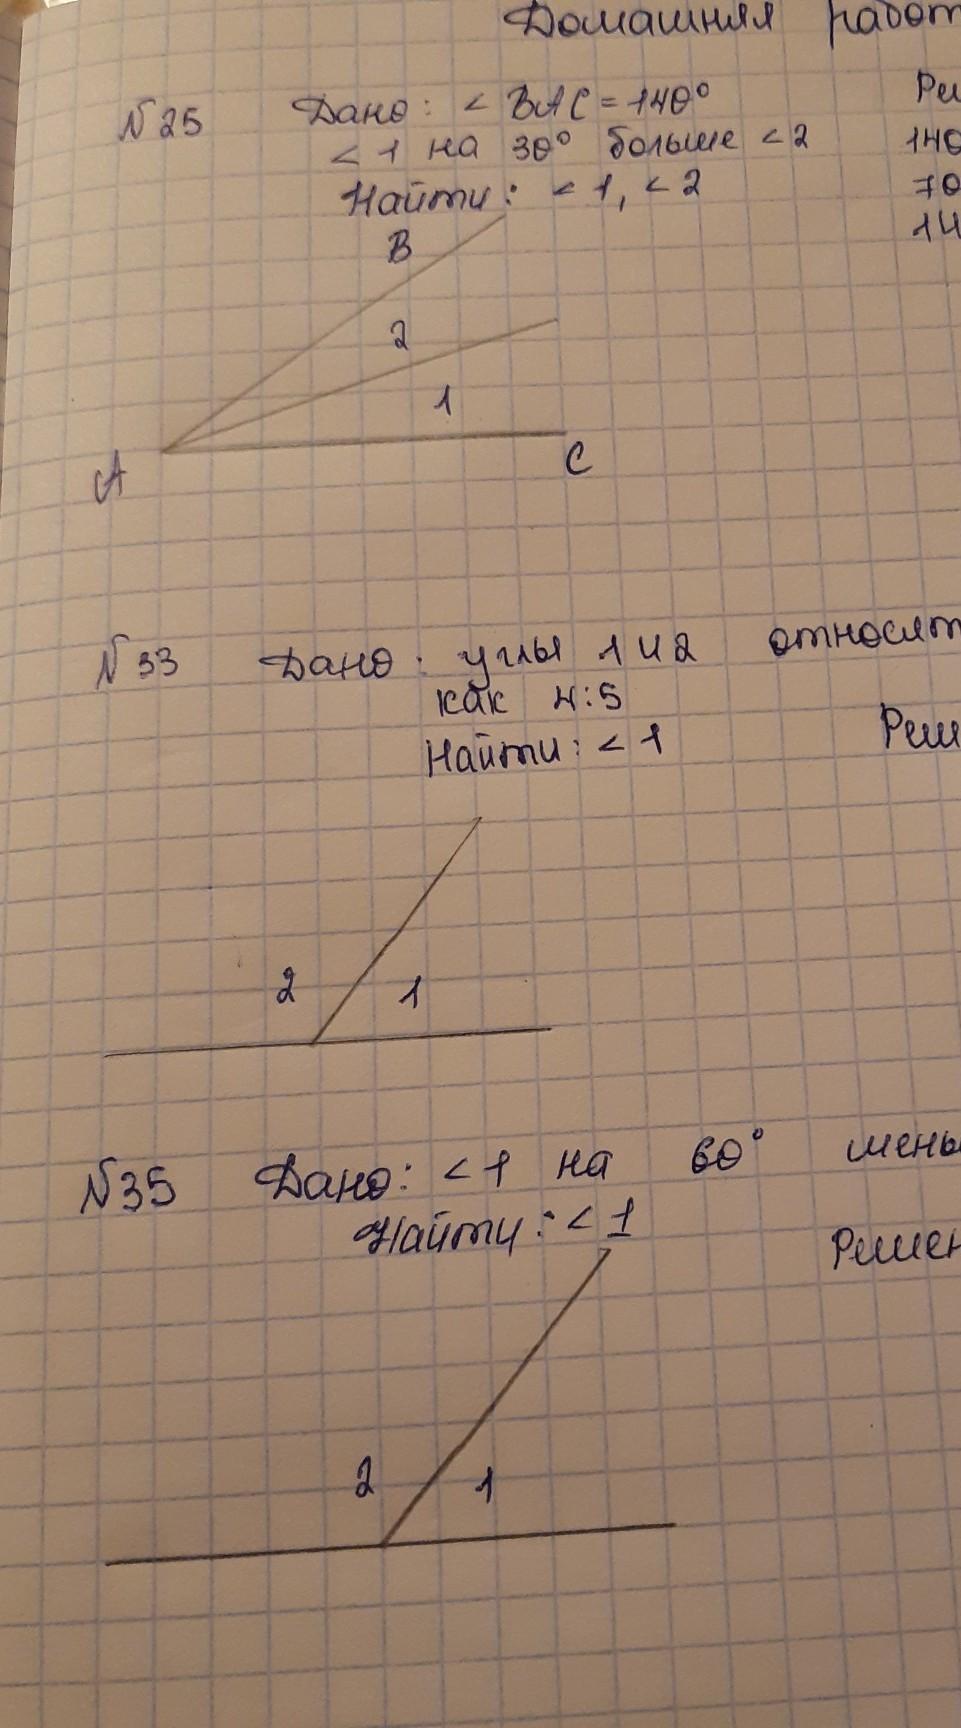 Домашняя работ
№25 Дано: < BAC = 140° Ре
< 1 на 30° больше < 2 140
Найти: < 1, < 2 70
14
B
2
1
A
C
№33 Дано: углы 1 и 2 относят
как 4:5
Найти: < 1 Реш
2 1
№35 Дано: < 1 на 60° мень
Найти: < 1
Решен
2 1